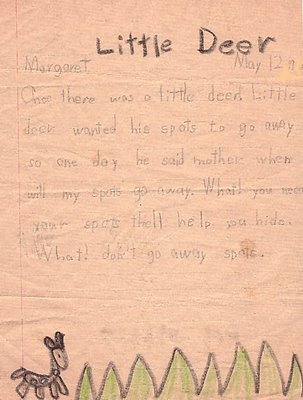 Little Deer
Margaret May 12
Once there was a little deer. Little
deer wanted his spots to go away
so one day he said mother when
will my spots go away. What! you need
your spots thell help you hide.
What! don't go away spots.